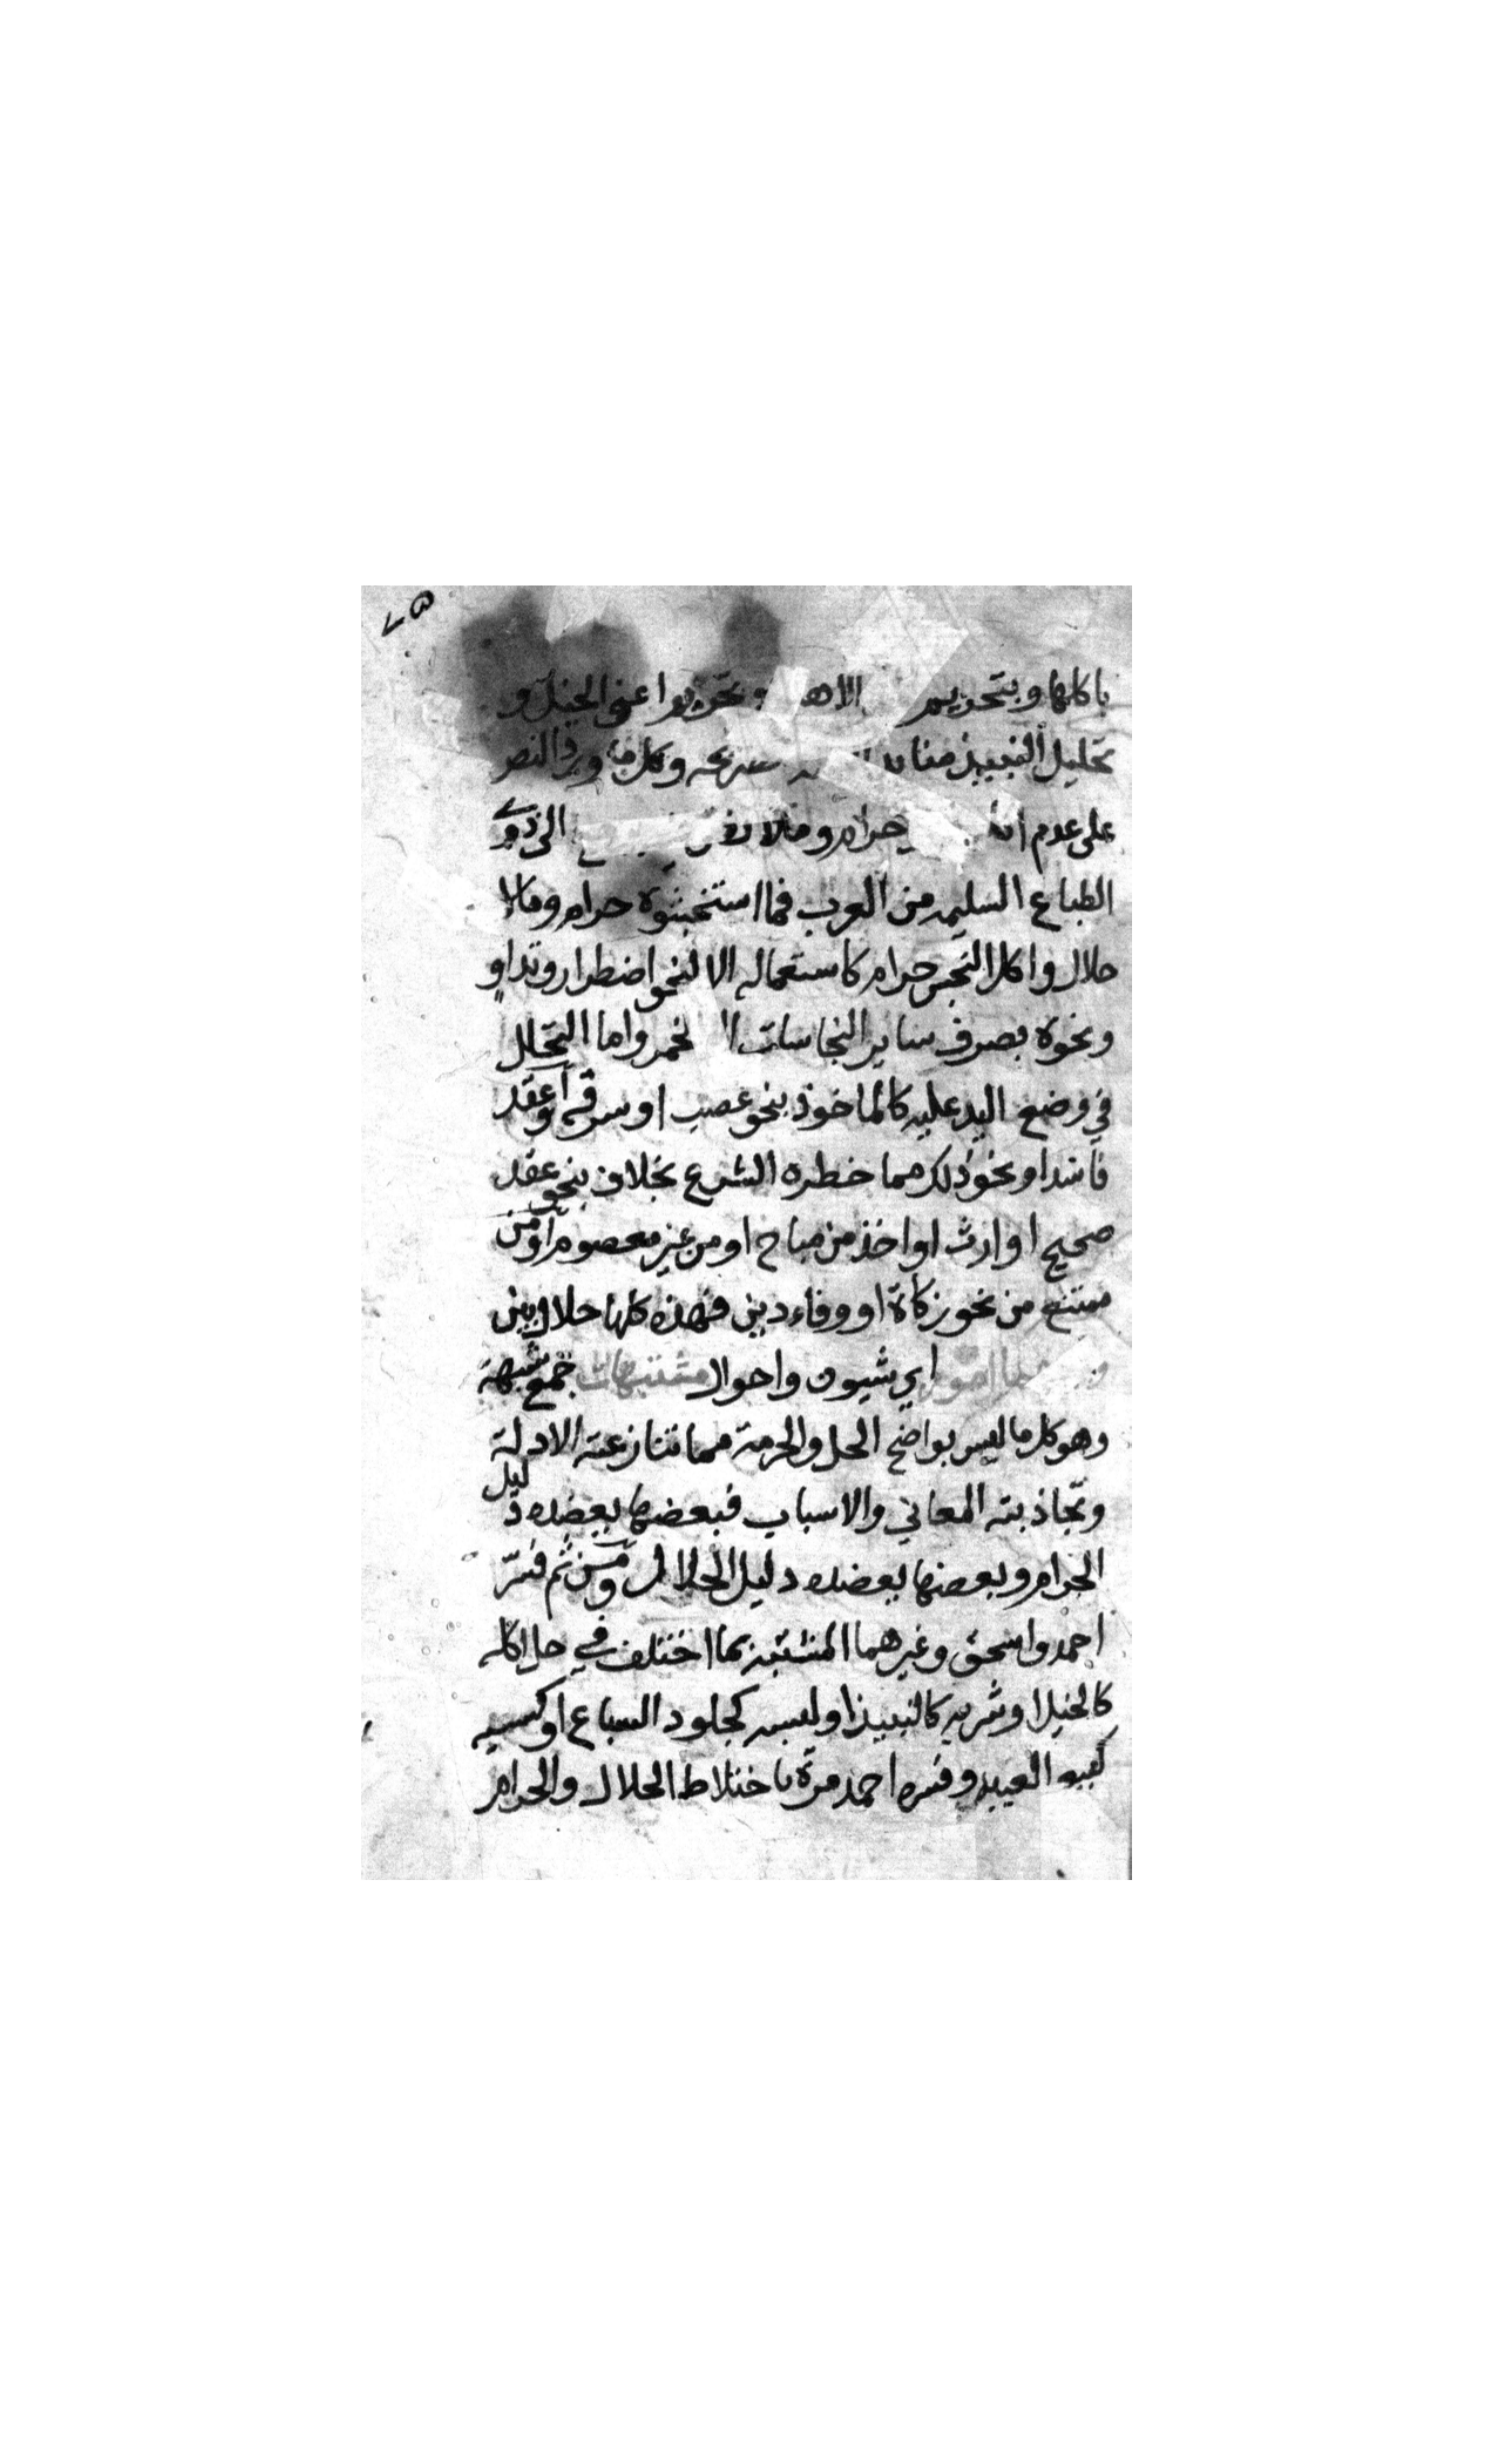 ٧٥
باكلها وبتحريم الاه وتحريم اعني الخيل و
تحليل النبيذ منا صريحه وكل ما ورد النص
على عدم ا حرام وما لا نص الى ذوي
الطباع السليمه من العرب فما استخبثوه حرام وما لا
حلال واكل النجس حرام كاستعماله الا لنحو اضطرار وتداو
ونحوه بصرف ساير النجاسات ا لخمر واما التحلل
في وضع اليد عليه كالماخوذ بنحو غصب او سرقه او عقد
فاسد او نحو ذلك مما خطره الشرع بخلاف بنحو عقد
صحيح او ارث او اخذ من مباح او من غير معصوم او من
ممتنع من نحو زكاة او وفاء دين فهذه كلها حلال بين
امور اي شيون واحوال مشتبهات جمع شبهة
وهو كل ما ليس بواضح الحل والحرمة مما تنازعته الادلة
وتجاذبته المعاني والاسباب فبعضها يعضده دليل
الحرام وبعضها يعضده دليل الحلال ومن ثم فسر
احمد واسحق وغيرهما المشتبه بما اختلف في حل اكله
كالخيل او شربه كالنبيذ او لبسه كجلود السباع او كسبه
كبيع العينه وفسره احمد مرة باختلاط الحلال والحرام